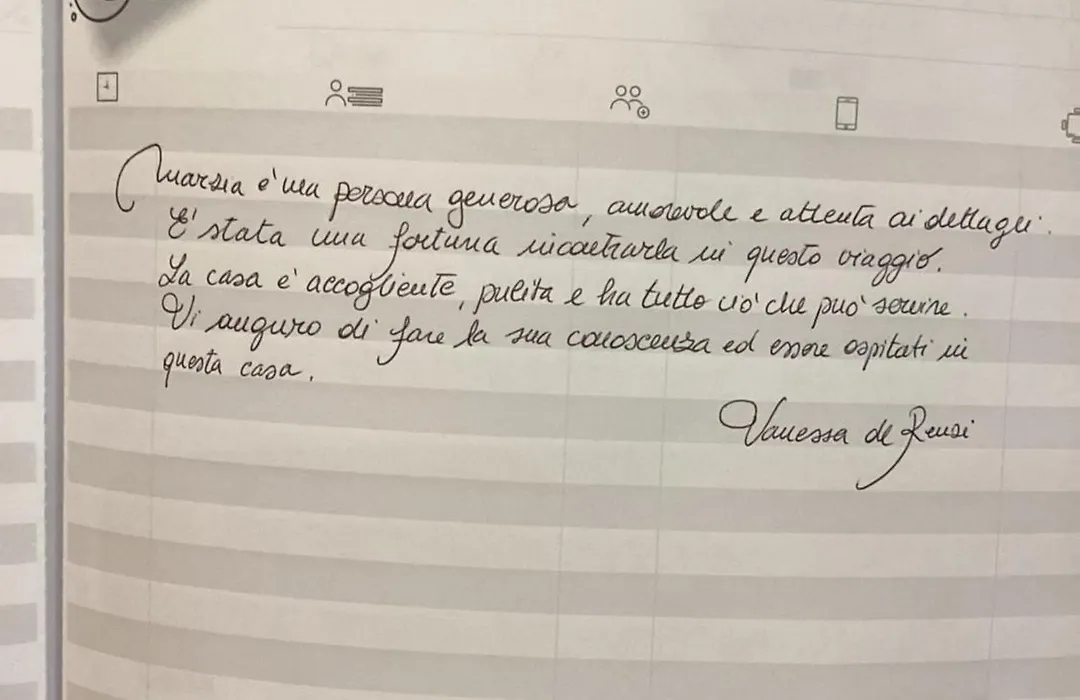 Marzia è una persona generosa, amorevole e attenta ai dettagli.
E' stata una fortuna incontrarla in questo viaggio.
La casa è accogliente, pulita e ha tutto ciò che può servire.
Vi auguro di fare la sua conoscenza ed essere ospitati in
questa casa.
Vanessa de Rensi